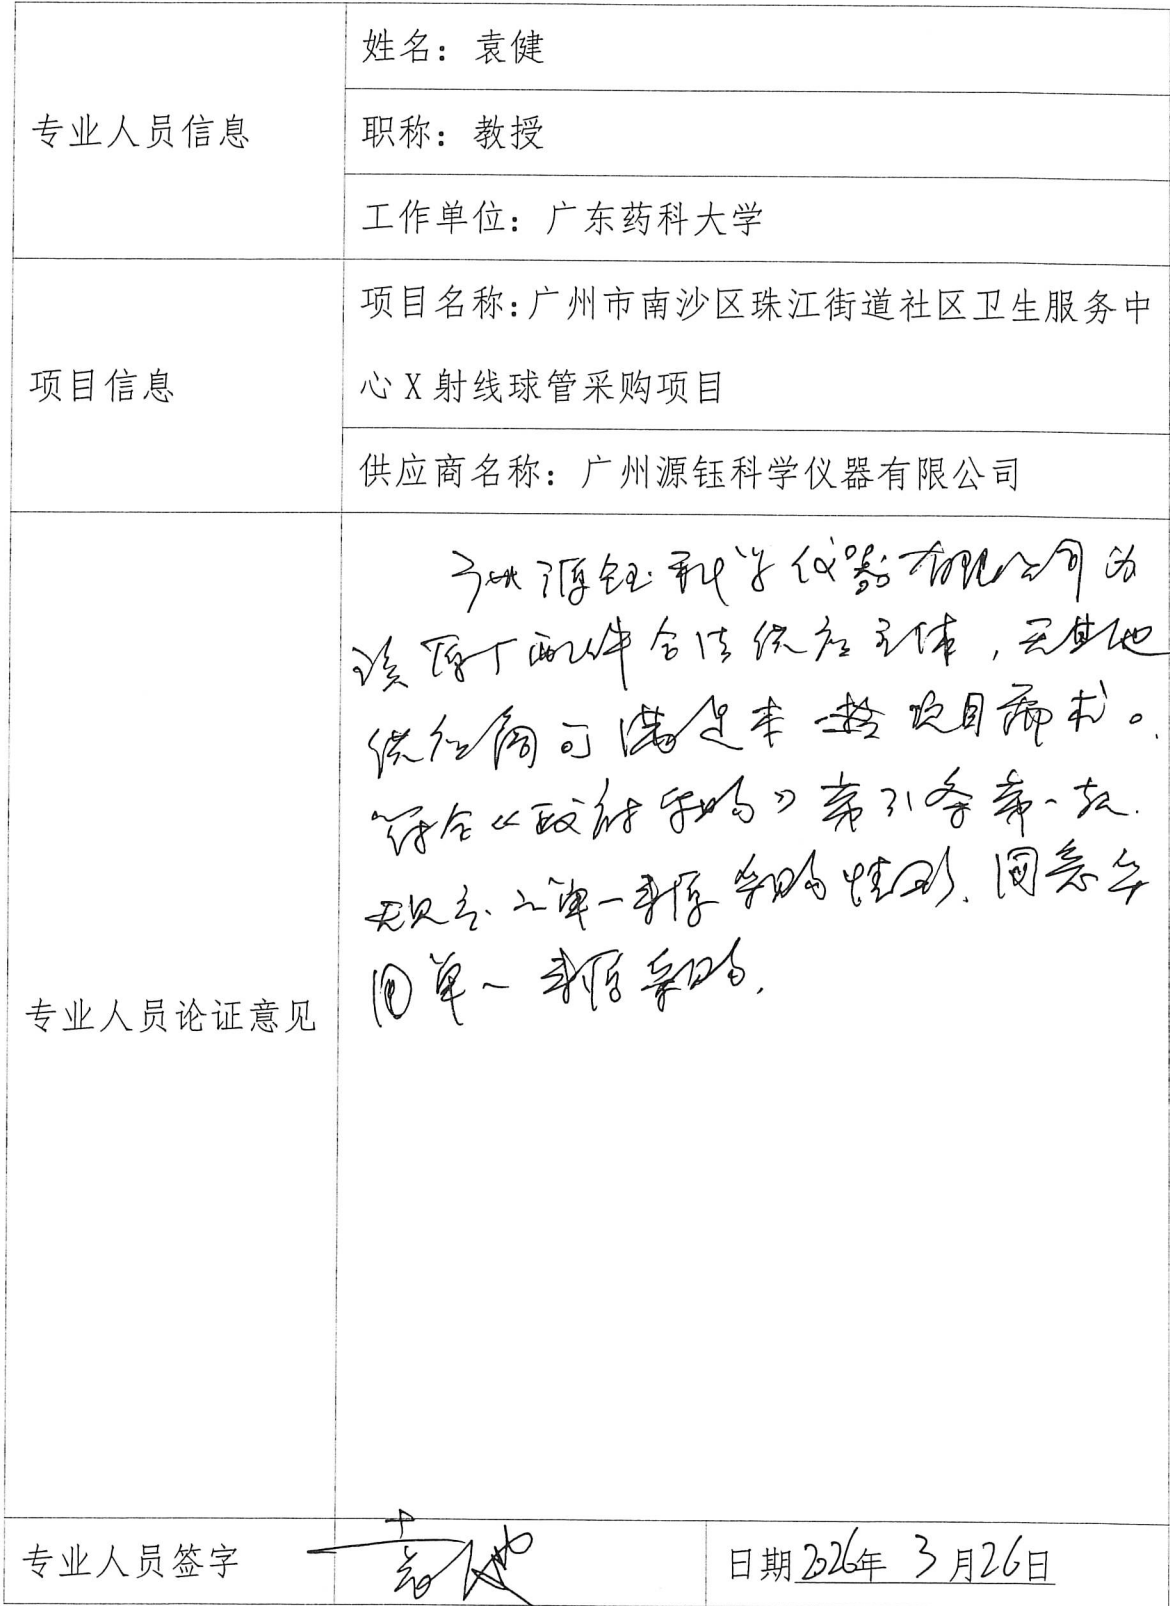 姓名：袁健
专业人员信息
职称：教授
工作单位：广东药科大学
项目名称:广州市南沙区珠江街道社区卫生服务中
项目信息
心X射线球管采购项目
供应商名称：广州源钰科学仪器有限公司
广州源钰科学仪器有限公司为
该原厂配件合法供应主体，无其他
供应商可满足本 项目需求。
符合《政府采购》第31条第一款
规定 单一来源采购情形.同意采
用单一来源采购.
专业人员论证意见
专业人员签字 袁健 日期2026年3月26日